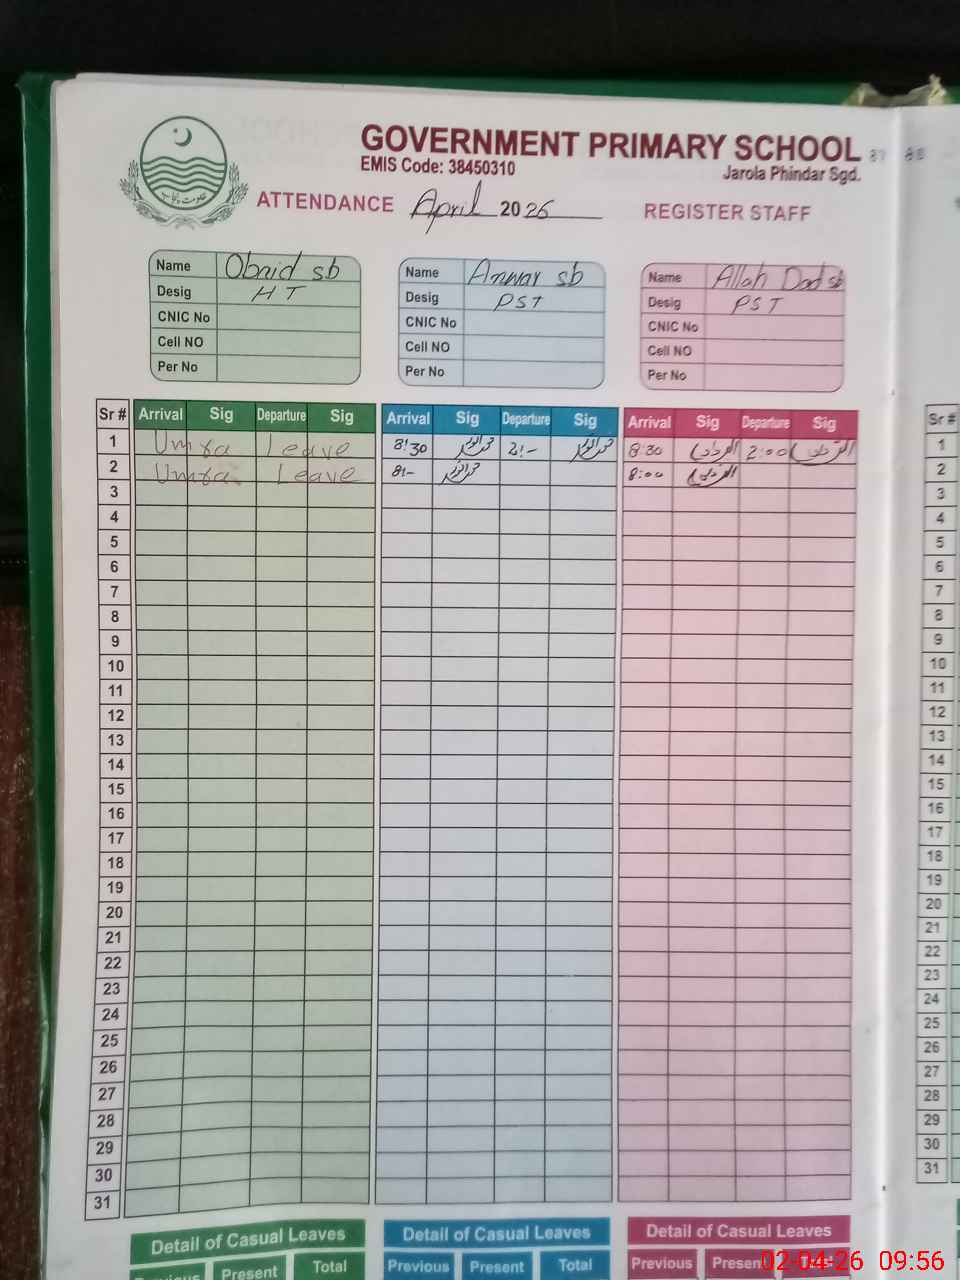 GOVERNMENT PRIMARY SCHOOL
EMIS Code: 38450310
Jarola Phindar Sgd.
حکومت پنجاب
ATTENDANCE April 2026 REGISTER STAFF
Name Obaid sb
Desig HT
CNIC No
Cell NO
Per No
Name Anwar sb
Desig PST
CNIC No
Cell NO
Per No
Name Allah Dad sb
Desig PST
CNIC No
Cell NO
Per No
Sr # Arrival Sig Departure Sig Arrival Sig Departure Sig Arrival Sig Departure Sig Sr #
1 Umra Leave 8:30 2:- 8:30 2:00 1
2 Umra Leave 8:- 8:00 2
3 3
4 4
5 5
6 6
7 7
8 8
9 9
10 10
11 11
12 12
13 13
14 14
15 15
16 16
17 17
18 18
19 19
20 20
21 21
22 22
23 23
24 24
25 25
26 26
27 27
28 28
29 29
30 30
31 31
Detail of Casual Leaves Detail of Casual Leaves Detail of Casual Leaves
Previous Present Total Previous Present Total Previous Present
02-04-26 09:56